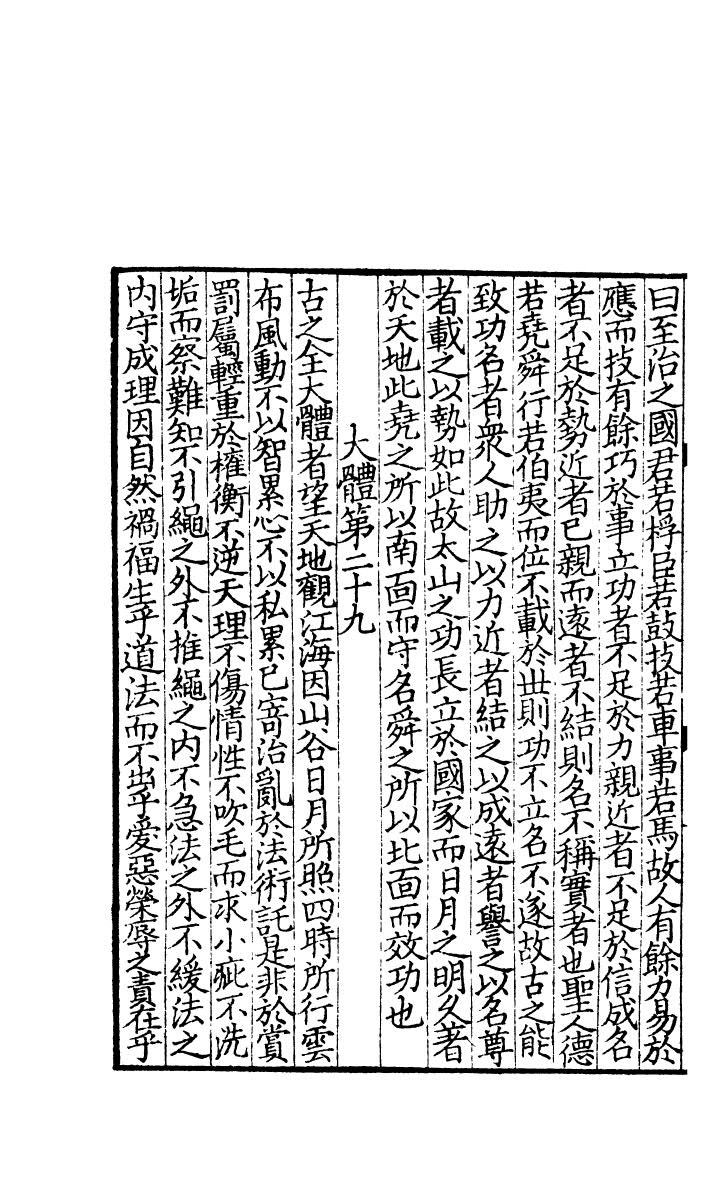 曰至治之國君若桴臣若鼓技若車事若馬故人有餘力易於
應而技有餘巧於事立功者不足於力親近者不足於信成名
者不足於勢近者已親而遠者不結則名不稱實者也聖人德
若堯舜行若伯夷而位不載於丗則功不立名不遂故古之能
致功名者衆人助之以力近者結之以成遠者譽之以名尊
者載之以勢如此故太山之功長立於國家而日月之明久著
於天地此堯之所以南面而守名舜之所以北面而效功也
大體第二十九
古之全大體者望天地觀江海因山谷日月所照四時所行雲
布風動不以智累心不以私累己寄治亂於法術託是非於賞
罰屬輕重於權衡不逆天理不傷情性不吹毛而求小疵不洗
垢而察難知不引繩之外不推繩之内不急法之外不緩法之
内守成理因自然禍福生乎道法而不出乎愛惡榮辱之責在乎